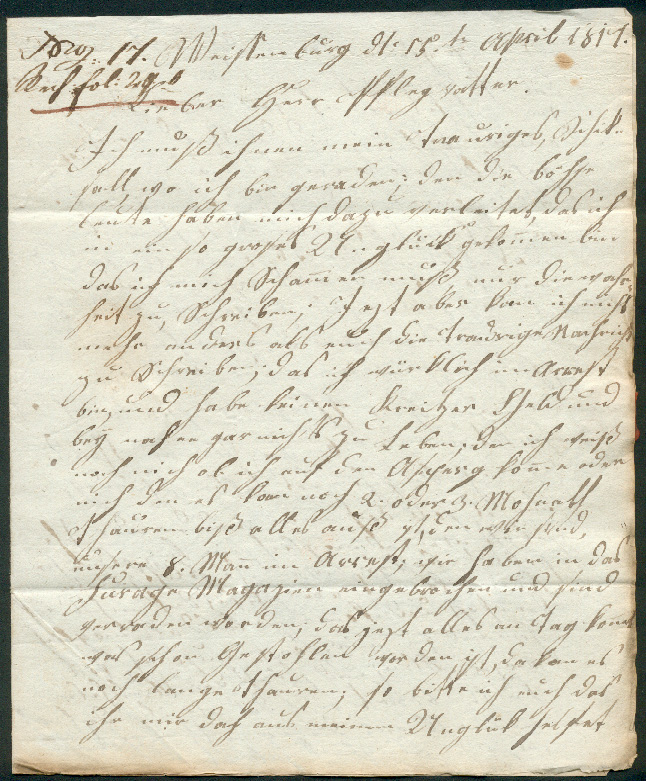 No: 17. Weissenburg dt: 15ten April 1817.
Rech fol: 29 b
Lieber Herr Pflegvatter.
Ich muß ihnen mein Trauriges, Schik-
sall wo ich bin geraden; den die böhse
leute haben mich dazu verleitet, das ich
in ein so großes Unglück gekommen bin
das ich mich Schammen muß nur die wahr-
heit zu, Schreiben; Jezt aber kan ich nicht
mehr anders als euch die Traurige Nachricht
zu Schreiben; das ich würklich im Arrest
bin, und habe keinen Kreitzer Geld und
bey nahee gar nichts zu Leben, den ich weiß
noch nich ob ich auf den Asperg kome oder
nich den es kan noch 2. oder 3. Mohnatt
thauren biß alles auß ist, den wir sind,
unsere 8. Man im Arrest, wir haben in das
Furäge Magazien eingebrochen und sind
verraden worden; das jezt alles an Tag komt
was schon Gestohlen worden ist, da kan es
noch lange thauren; so bitte ich euch das
ihr mir doch aus meinem Unglük helfet